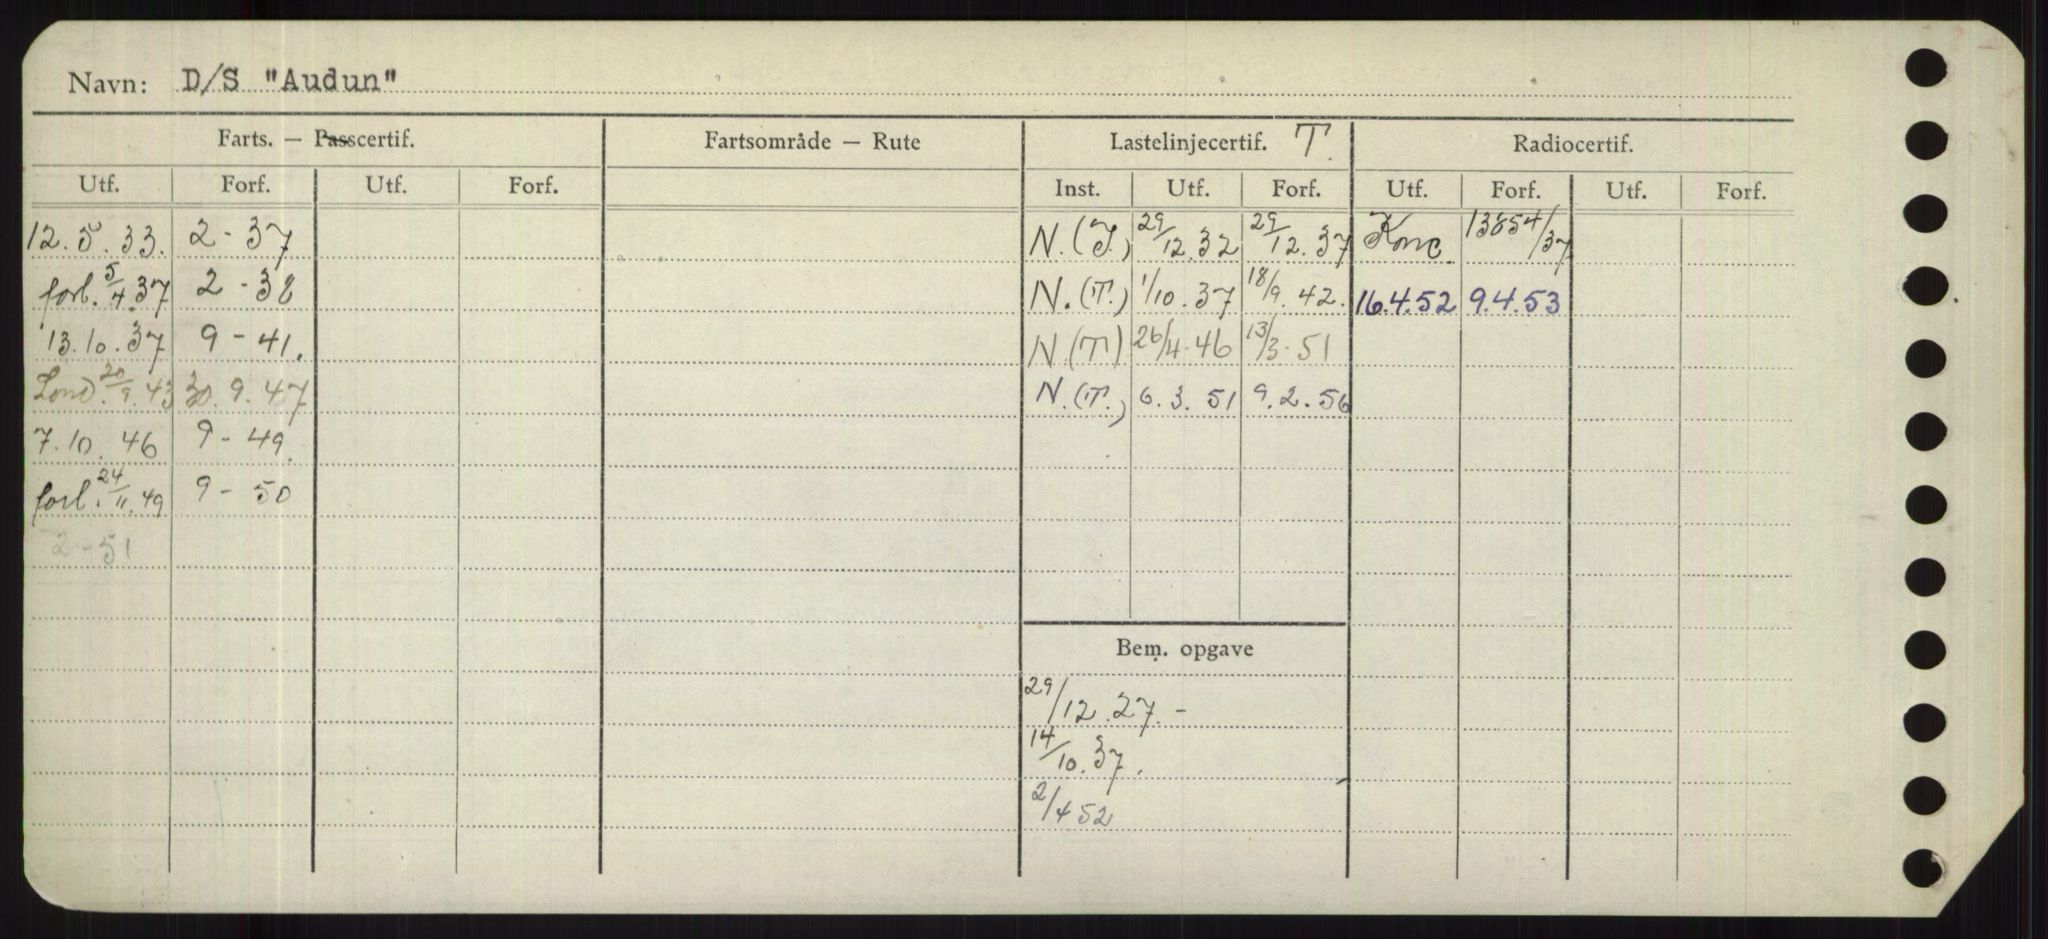 Navn: D/S "Audun"
Farts. — Passcertif. Fartsområde — Rute Lastelinjecertif. T. Radiocertif.
Utf. Forf. Utf. Forf. Inst. Utf. Forf. Utf. Forf. Utf. Forf.
12.5.33. 2-37 N.(T.) 29/12.32 29/12.37 Konc. 13854/37
forl. 5/4.37 2-38 N.(T.) 1/10.37 18/9.42. 16.4.52 9.4.53
13.10.37 9-41. N.(T) 26/4.46 13/3-51
Lond. 20/9.43 30.9.47 N.(T.) 6.3.51 9.2.56
7.10.46 9-49.
forl. 24/11.49 9-50
2-51
Bem. opgave
29/12.27.-
14/10.37.
2/4 52